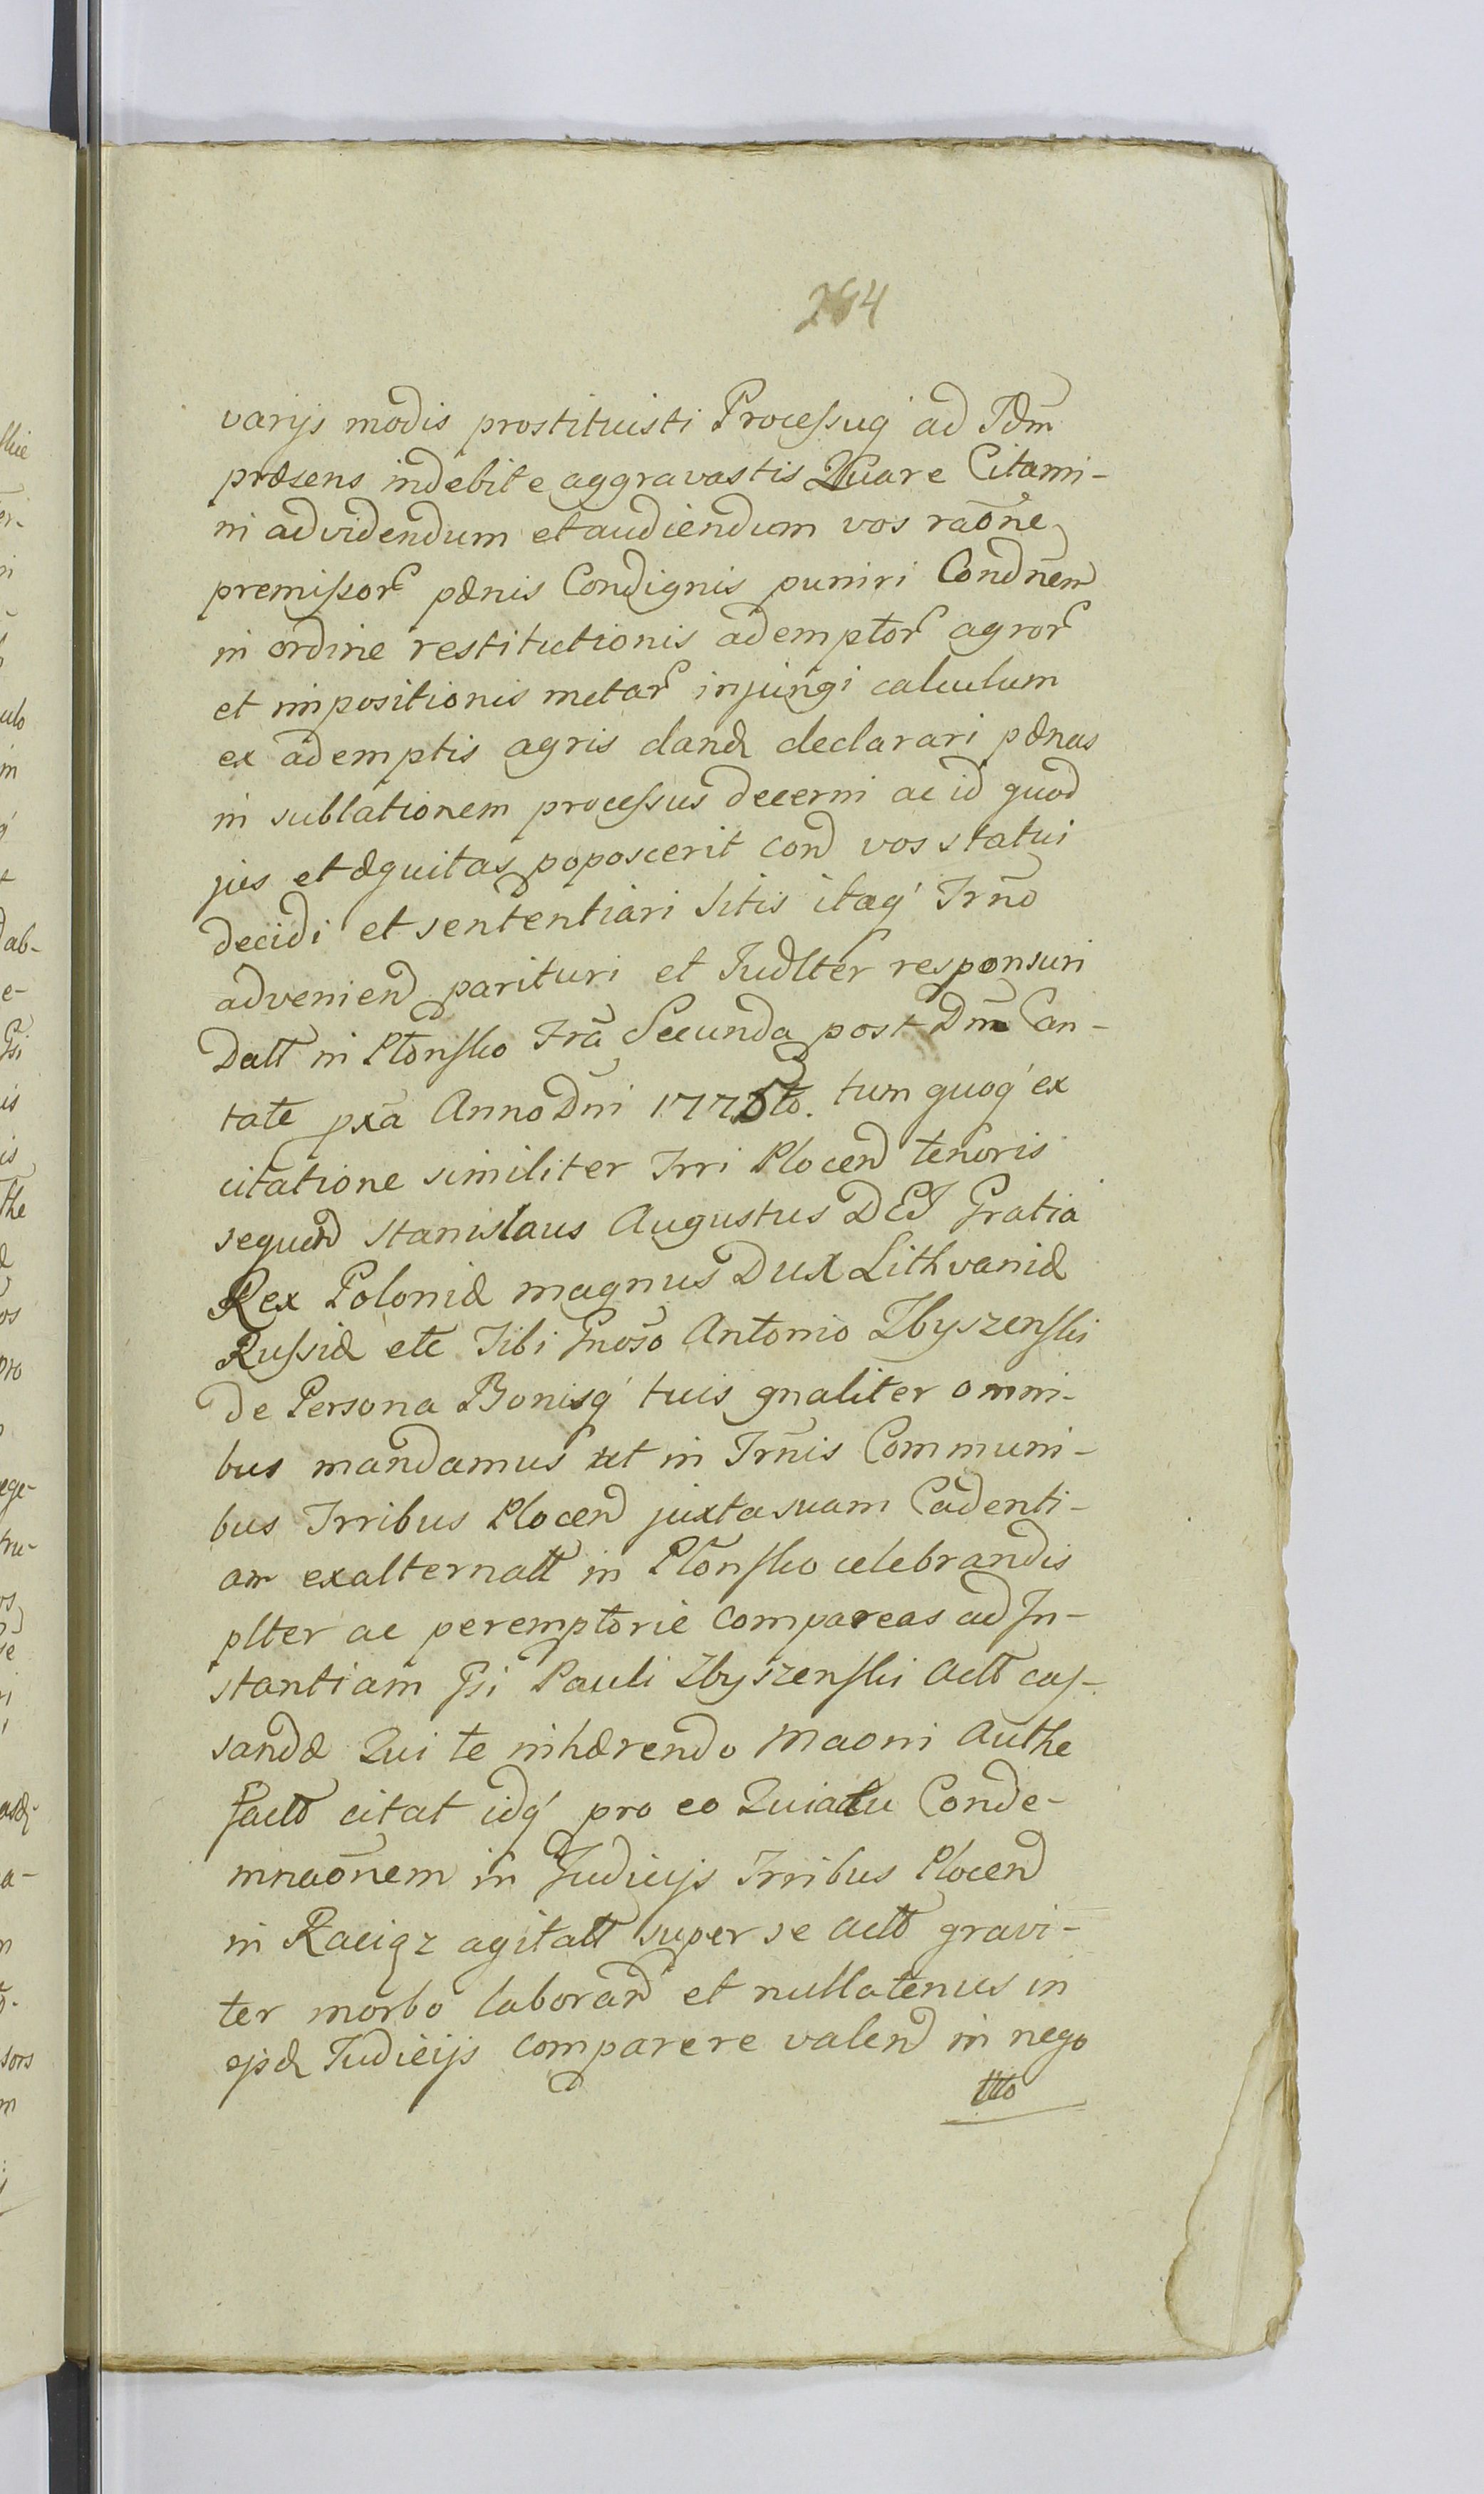 294
varijs modis prostituisti Processuq' ad Tdm̃
præsens indebite aggravastis Quare Citami-
ni ad videndum et audiendum vos raõne
premissor pænis Condignis puniri Condnẽm
in ordine restitutionis ademptor agror
et impositionis metar injungi calculum
ex ademptis agris dandæ declarari pænas
in sublationem processus decerni ac id quod
jus et æquitas poposcerit cond vos statui
decidi et sententiari Sitis itaq' Trñno
adveniend parituri et Judlter responsuri
Datt in Płonsko Fra Secunda post Dm̃ Can-
tate pxa Anno Dni 1775to. tum quoq' ex
citatione similiter Trri Plocen tenoris
sequen Stanislaus Augustus DEI Gratia
Rex Poloniæ magnus Dux Lithvaniæ
Russiæ etc Tibi Gnoso Antonio Zbyszenski
de Persona Bonisq' tuis gnaliter omni-
bus mandamus ut in Trñis Communi-
bus Trribus Plocen juxta suam Cadenti-
am ex alternatt in Płonsko celebrandis
plter ac peremptorie compareas ad In-
stantiam Gsi Pauli Zbyszenski Actt cas-
sandæ Qui te inhærendo Maoni Authe
factt citat idq' pro eo Quia tu Conde-
mnaõnem in Judicijs Trribus Plocen
in Raciąz agitatt super se Actt gravi-
ter morbo laboran et nullatenus in
ejsd Judicijs comparere valen in nego
tto